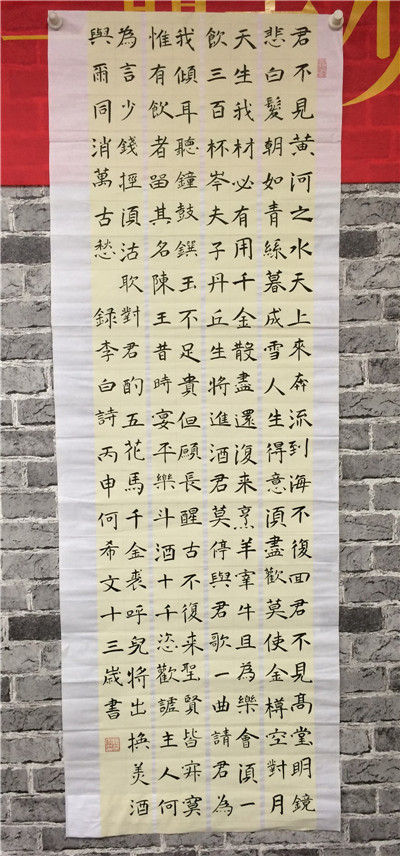 君不見黃河之水天上來奔流到海不復回君不見高堂明鏡
悲白髮朝如青絲暮成雪人生得意湏盡歡莫使金樽空對月
天生我材必有用千金散盡還復來烹羊宰牛且為樂會湏一
飲三百杯岑夫子丹丘生將進酒君莫停與君歌一曲請君為
我傾耳聽鐘鼓饌玉不足貴但願長醒古不復來聖賢皆寂寞
惟有飲者留其名陳王昔時宴平樂斗酒十千恣歡謔主人何
為言少錢徑湏沽取對君酌五花馬千金裘呼兒將出換美酒
與爾同消萬古愁 錄李白詩丙申何希文十三歲書